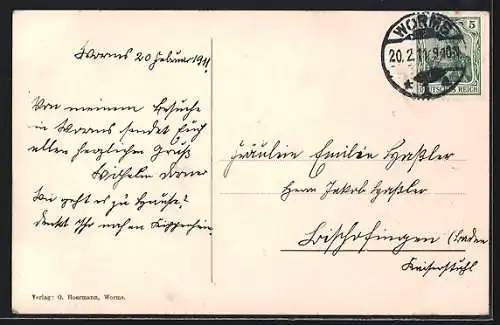 Worms 20 Februar 1911
Von meinem Besuche
in Worms sendet Euch
allen herzlichen Gruß
Wilhelm
Wie geht es zu Hause?
denkt Ihr noch an
Fräulein Emilie Haßler
Herrn Jakob Haßler
Bischofingen (Baden
Kaiserstuhl
WORMS
20.2.11.9-10N
5
DEUTSCHES REICH
Verlag: O. Hoermann, Worms.